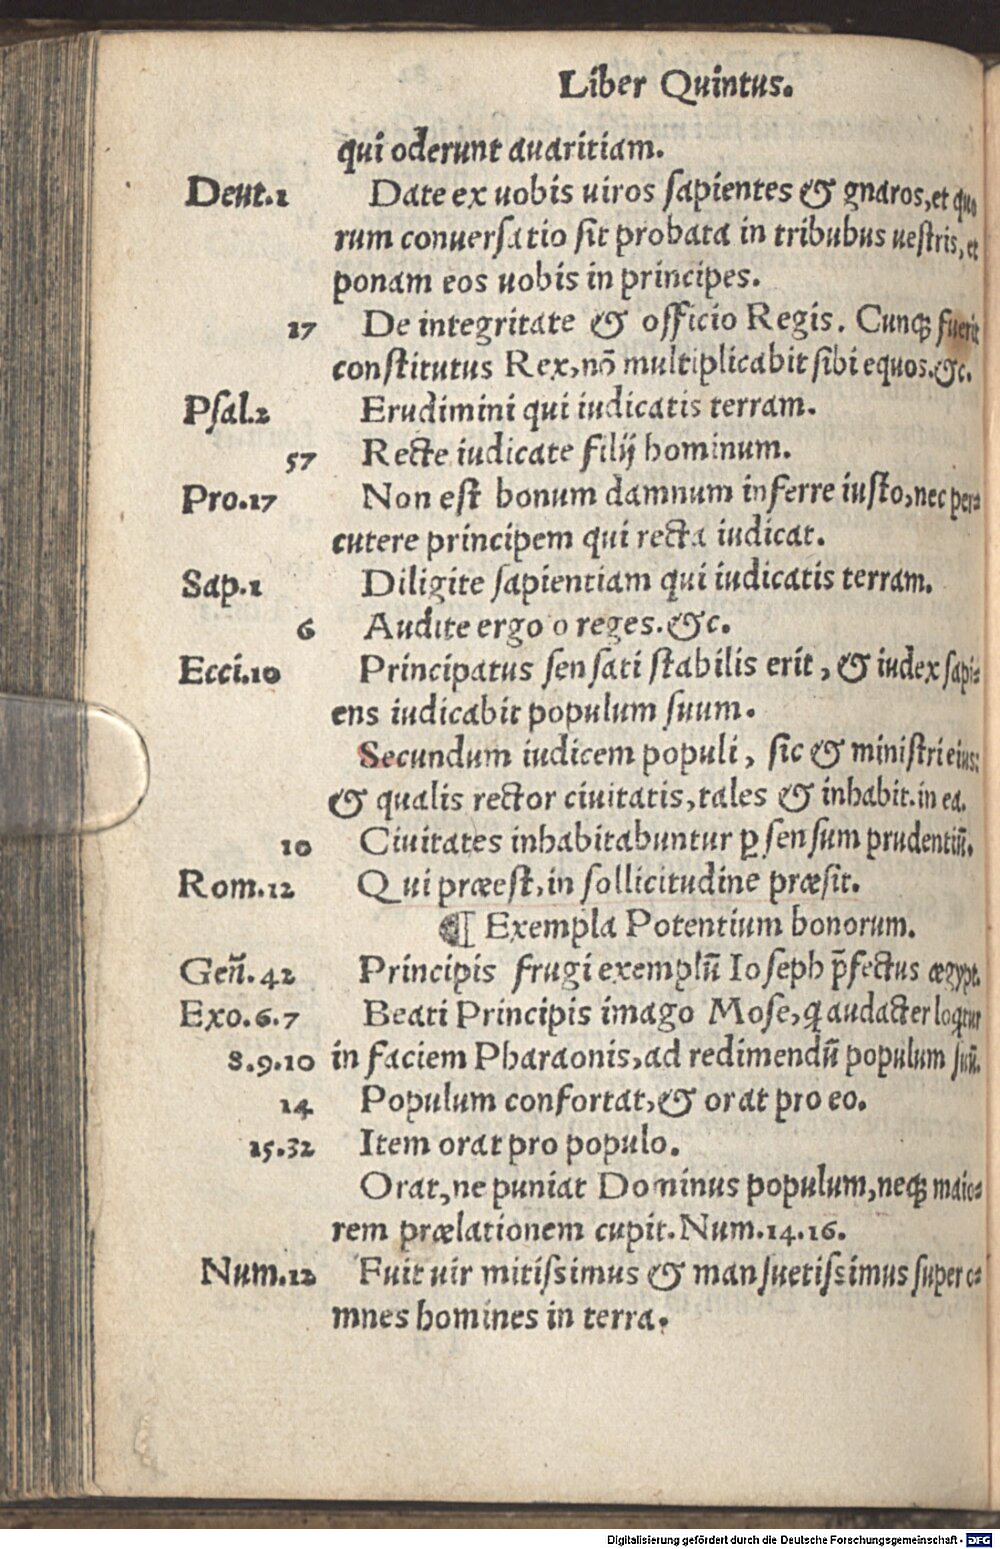 Liber Quintus.
qui oderunt auaritiam.
Deut.1 Date ex uobis uiros sapientes & gnaros, et quo
rum conuersatio sit probata in tribubus uestris, et
ponam eos uobis in principes.
17 De integritate & officio Regis. Cunqꝫ fuerit
constitutus Rex, nō multiplicabit sibi equos. &c.
Psal.2 Erudimini qui iudicatis terram.
57 Recte iudicate filij hominum.
Pro.17 Non est bonum damnum inferre iusto, nec per=
cutere principem qui recta iudicat.
Sap.1 Diligite sapientiam qui iudicatis terram.
6 Audite ergo o reges. &c.
Ecci.10 Principatus sensati stabilis erit, & iudex sapi=
ens iudicabit populum suum.
Secundum iudicem populi, sic & ministri eius:
& qualis rector ciuitatis, tales & inhabit. in ea.
10 Ciuitates inhabitabuntur ꝑ sensum prudentiū.
Rom.12 Qui præest, in sollicitudine præsit.
¶ Exempla Potentium bonorum.
Geñ.42 Principis frugi exemplū Ioseph p̄fectus ægypt.
Exo.6.7 Beati Principis imago Mose, ꝗ audacter loꝗtur
8.9.10 in faciem Pharaonis, ad redimendū populum suū.
14 Populum confortat, & orat pro eo.
15.32 Item orat pro populo.
Orat, ne puniat Dominus populum, neqꝫ maio=
rem prælationem cupit. Num.14.16.
Num.12 Fuit uir mitissimus & mansuetissimus super o=
mnes homines in terra.
Digitalisierung gefördert durch die Deutsche Forschungsgemeinschaft - DFG